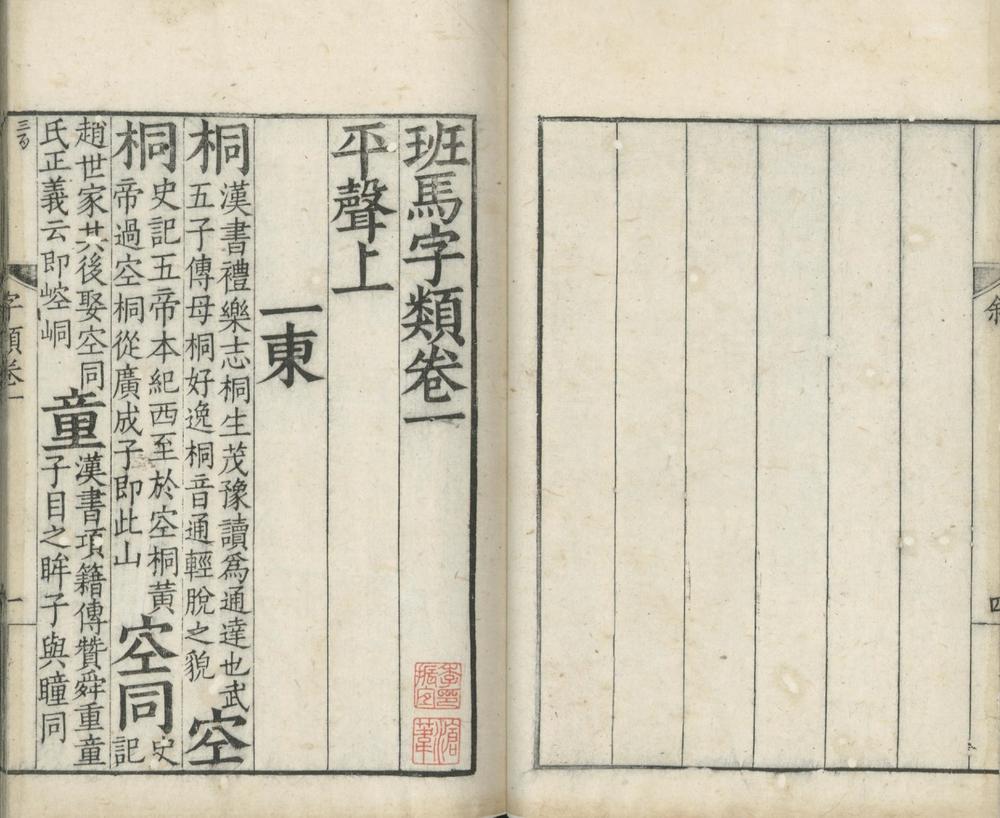 班馬字類卷一
平聲上
一東
桐漢書禮樂志桐生茂豫讀爲通達也武
五子傳母桐好逸桐音通輕脫之貌空
桐史記五帝本紀西至於空桐黃
帝過空桐從廣成子即此山空同史記
趙世家其後娶空同
氏正義云即崆峒童漢書項籍傳贊舜重童
子目之眸子與瞳同
字類卷一
一
四